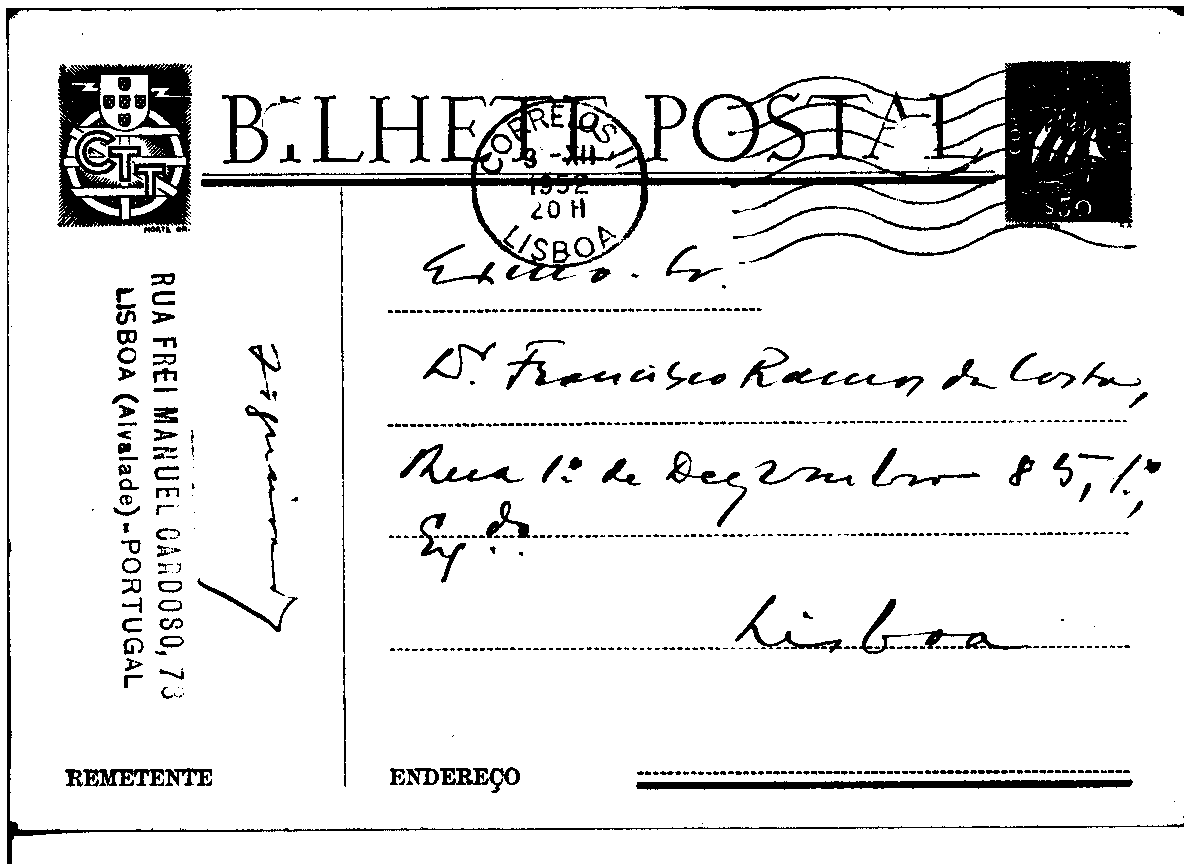 CTT
BILHETE POSTAL
CORREIOS
3 - XII
1952
20 H
LISBOA
$50
RUA FREI MANUEL CARDOSO, 73
LISBOA (Alvalade) - PORTUGAL
Exmo. Sr.
Dr. Francisco Ramos da Costa,
Rua 1º de Dezembro 85, 1º,
Eq.do
Lisboa
REMETENTE
ENDEREÇO